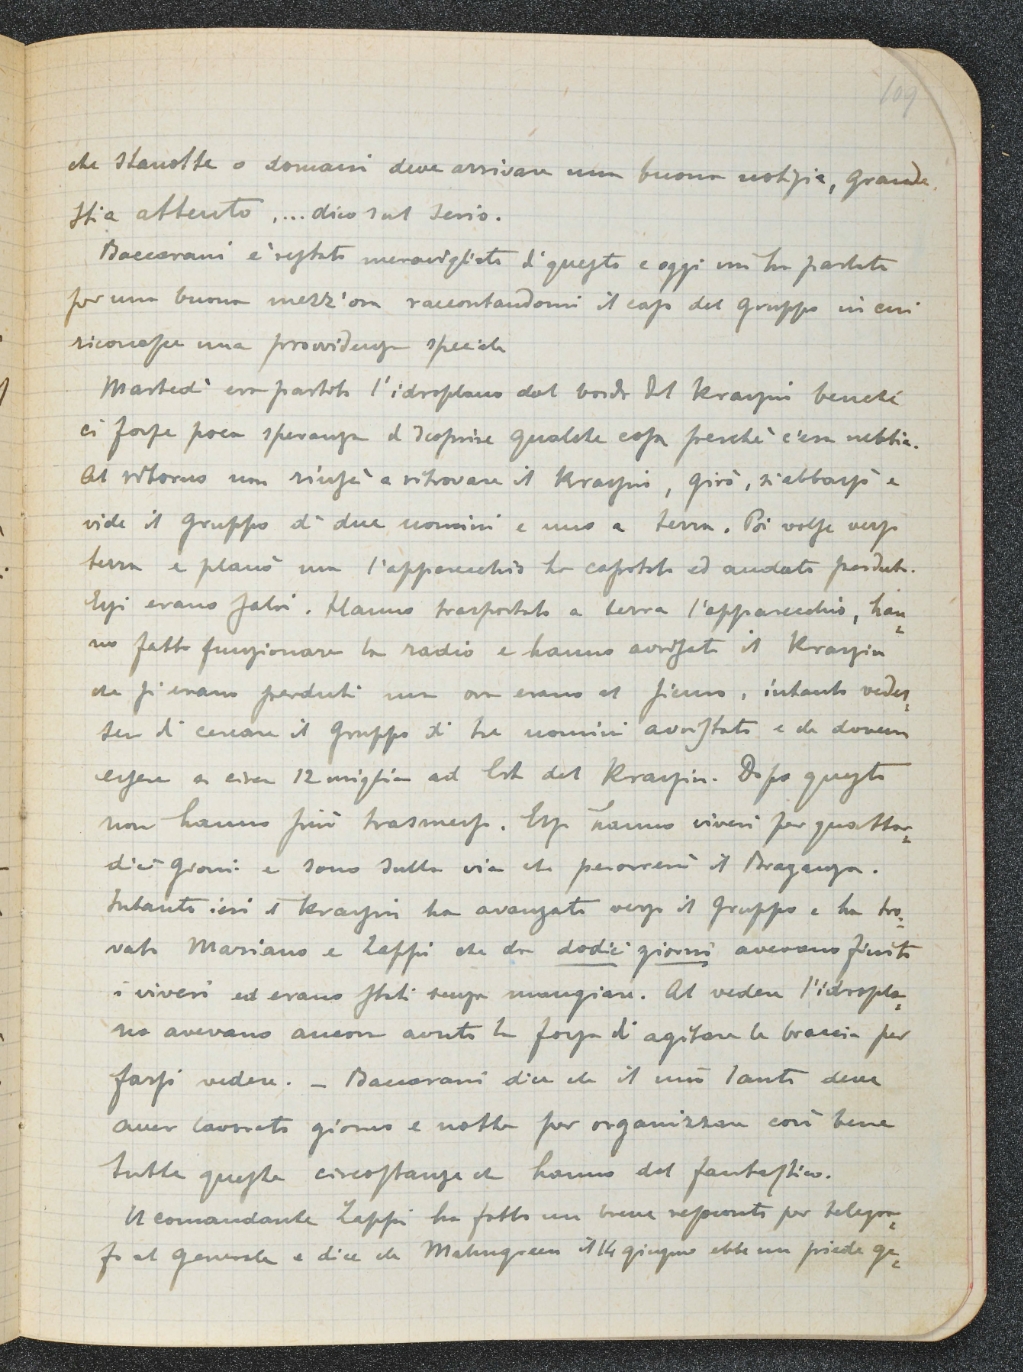 109
che stanotte o domani deve arrivare una buona notizia, grande.
Stia attento ,... dico sul serio.
Baccarani è restato meravigliato di questo e oggi mi ha parlato
per una buona mezz'ora raccontandomi il caso del gruppo in cui
riconosce una provvidenza speciale
Martedì era partito l'idroplano dal bordo del Krassin benché
ci fosse poca speranza di scoprire qualche cosa perché c'era nebbia.
Al ritorno non riuscì a ritrovare il Krassin, girò, si abbassò e
vide il gruppo di due uomini e uno a terra. Poi volse verso
terra e planò ma l'apparecchio ha capotato ed andato perduto.
Essi erano salvi. Hanno trasportato a terra l'apparecchio, han=
no fatto funzionare la radio e hanno avvisato il Krassin
che si erano perduti ma ora erano al sicuro, intanto vedes=
sero di cercare il gruppo di tre uomini avvistato e che doveva
essere a circa 12 miglia ad Est del Krassin. Dopo questo
non hanno più trasmesso. Essi hanno viveri per quattor=
dici giorni e sono sulla via che percorrerà il Braganza.
Intanto ieri il Krassin ha avanzato verso il gruppo e ha tro=
vato Mariano e Zappi che da dodici giorni avevano finito
i viveri ed erano stati senza mangiare. Al vedere l'idropla=
no avevano ancora avuto la forza di agitare le braccia per
farsi vedere. – Baccarani dice che il mio Santo deve
aver lavorato giorno e notte per organizzare così bene
tutte queste circostanze che hanno del fantastico.
Il comandante Zappi ha fatto un breve resoconto per telegra=
fo al generale e dice che Malmgreen il 14 giugno ebbe un piede ge=